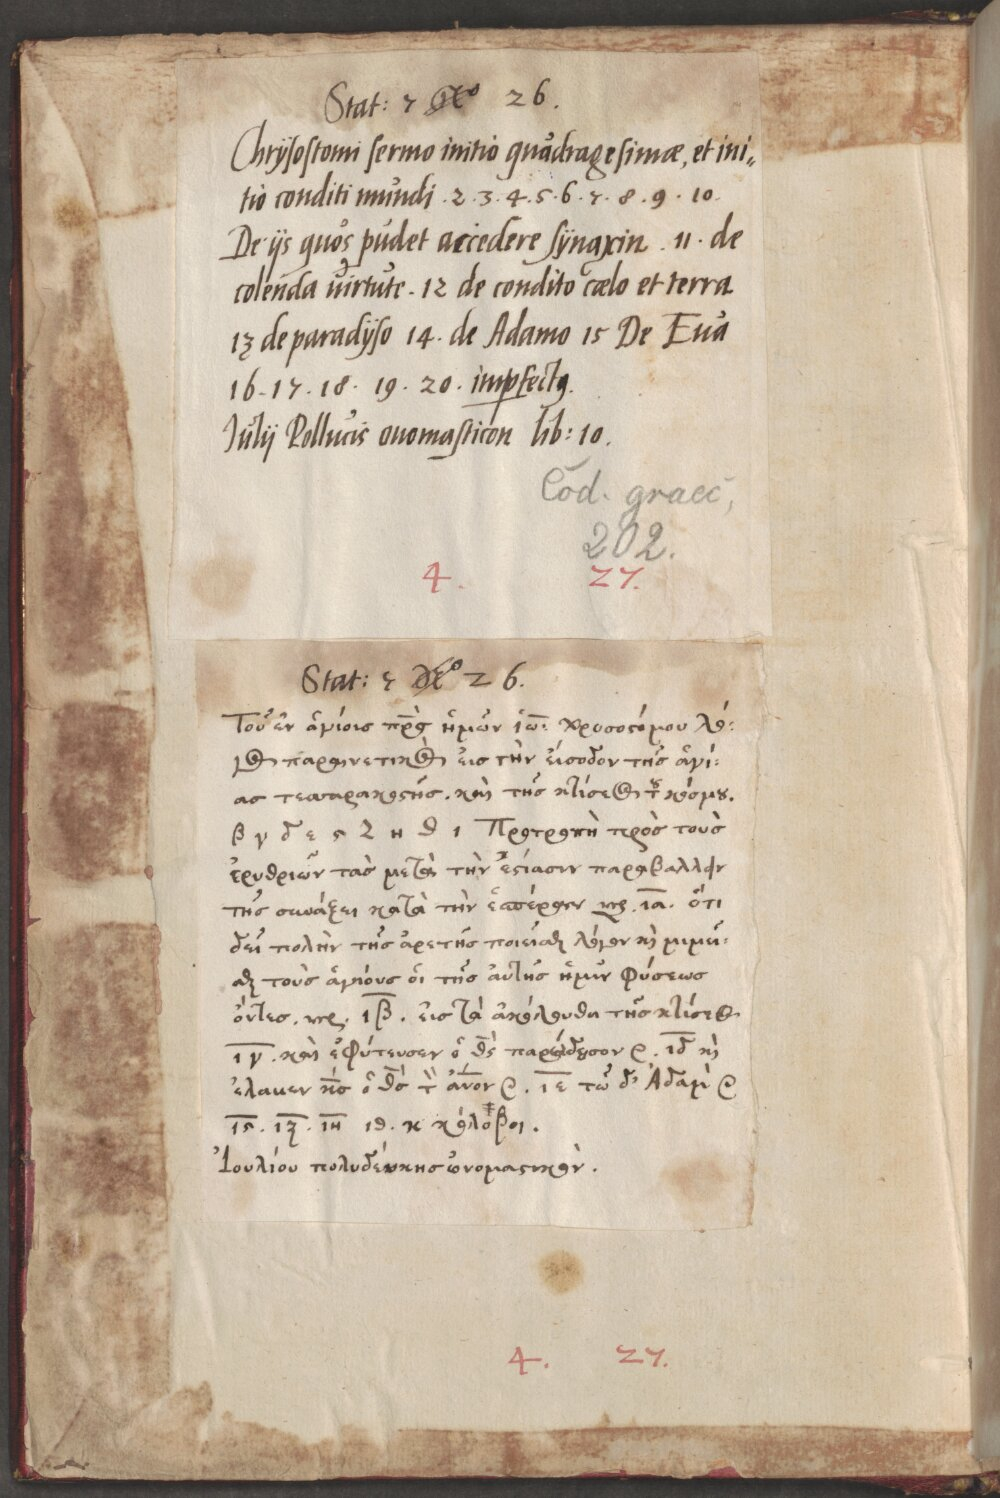 Stat: 7 Nº 26.
Chrÿsostomi sermo initio quadragesimæ, et ini„
tio conditi mundi . 2 . 3 . 4 . 5 . 6 . 7 . 8 . 9 . 10.
De ijs quos pudet accedere sÿnaxin . 11 . de
colenda virtute . 12 de condito cœlo et terra
13 de paradÿso 14 . de Adamo 15 De Eua
16 . 17 . 18 . 19 . 20 . imperfectus.
Iulij Pollucis onomasticon lib: 10.
Cod. graec,
202.
4. 27.
Stat: 7 Nº 26.
Τοῦ ἐν ἁγίοις πρς ἡμῶν ἰω: χρυσοστόμου λό:
γος παραινετικὸς εἰς τὴν εἴσοδον τῆς ἁγί:
ας τεσσαρακοστῆς. καὶ τῆς κτίσεως τοῦ κόσμου.
β γ δ ε ς ζ η θ ι Προτροπὴ πρὸς τοὺς
ἐρυθριῶντας μετὰ τὴν ἑστίασιν παραβάλλειν
τῆς συνάξει κατὰ τὴν ἑσπέραν ια. ὅτι
δεῖ πολὴν τῆς ἀρετῆς ποιεῖσθαι λόγον κὶ μιμεῖ:
σθαι τοὺς ἁγίους οἱ τῆς αὐτῆς ἡμῖν φύσεως
ὄντες. ιβ. εἰς τὰ ἀκόλουθα τῆς κτίσεως
ιγ. καὶ ἐφύτευσεν ὁ θς παράδεισον . ιδ κὶ
ἔλαβεν κς ὁ θς τὸν ἄνον . ιε τῶ δὲ Ἀδαμ
ις. ιζ. ιη ιθ. κ κόλοβοι.
Ἰουλίου πολυδεύκης ὀνομαστικόν.
4. 27.